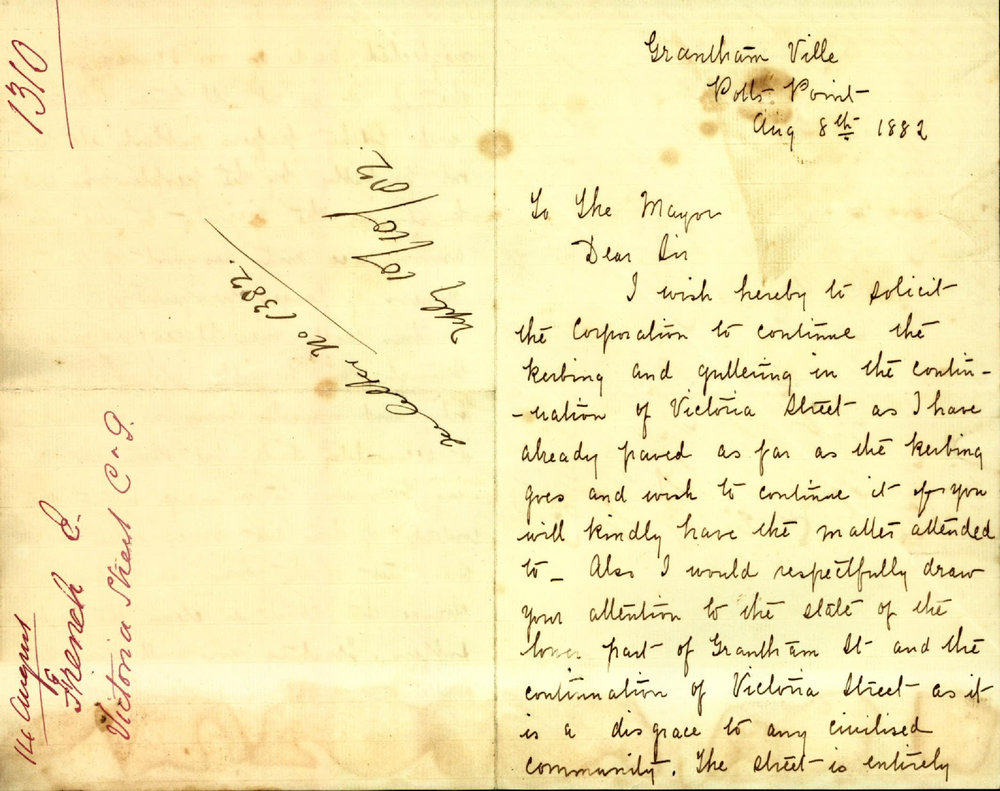 1310
14 August
French E.
Victoria Street C & G.
See letter No 1382.
Reply 10/10/82.
Grantham Ville
Potts Point
Aug 8th 1882
To The Mayor
Dear Sir
I wish hereby to solicit
the Corporation to continue the
kerbing and guttering in the contin-
-uation of Victoria Street as I have
already paved as far as the kerbing
goes and wish to continue it if you
will kindly have the matter attended
to_ Also I would respectfully draw
your attention to the state of the
lower part of Grantham St and the
continuation of Victoria Street as it
is a disgrace to any civilised
community. The street is entirely